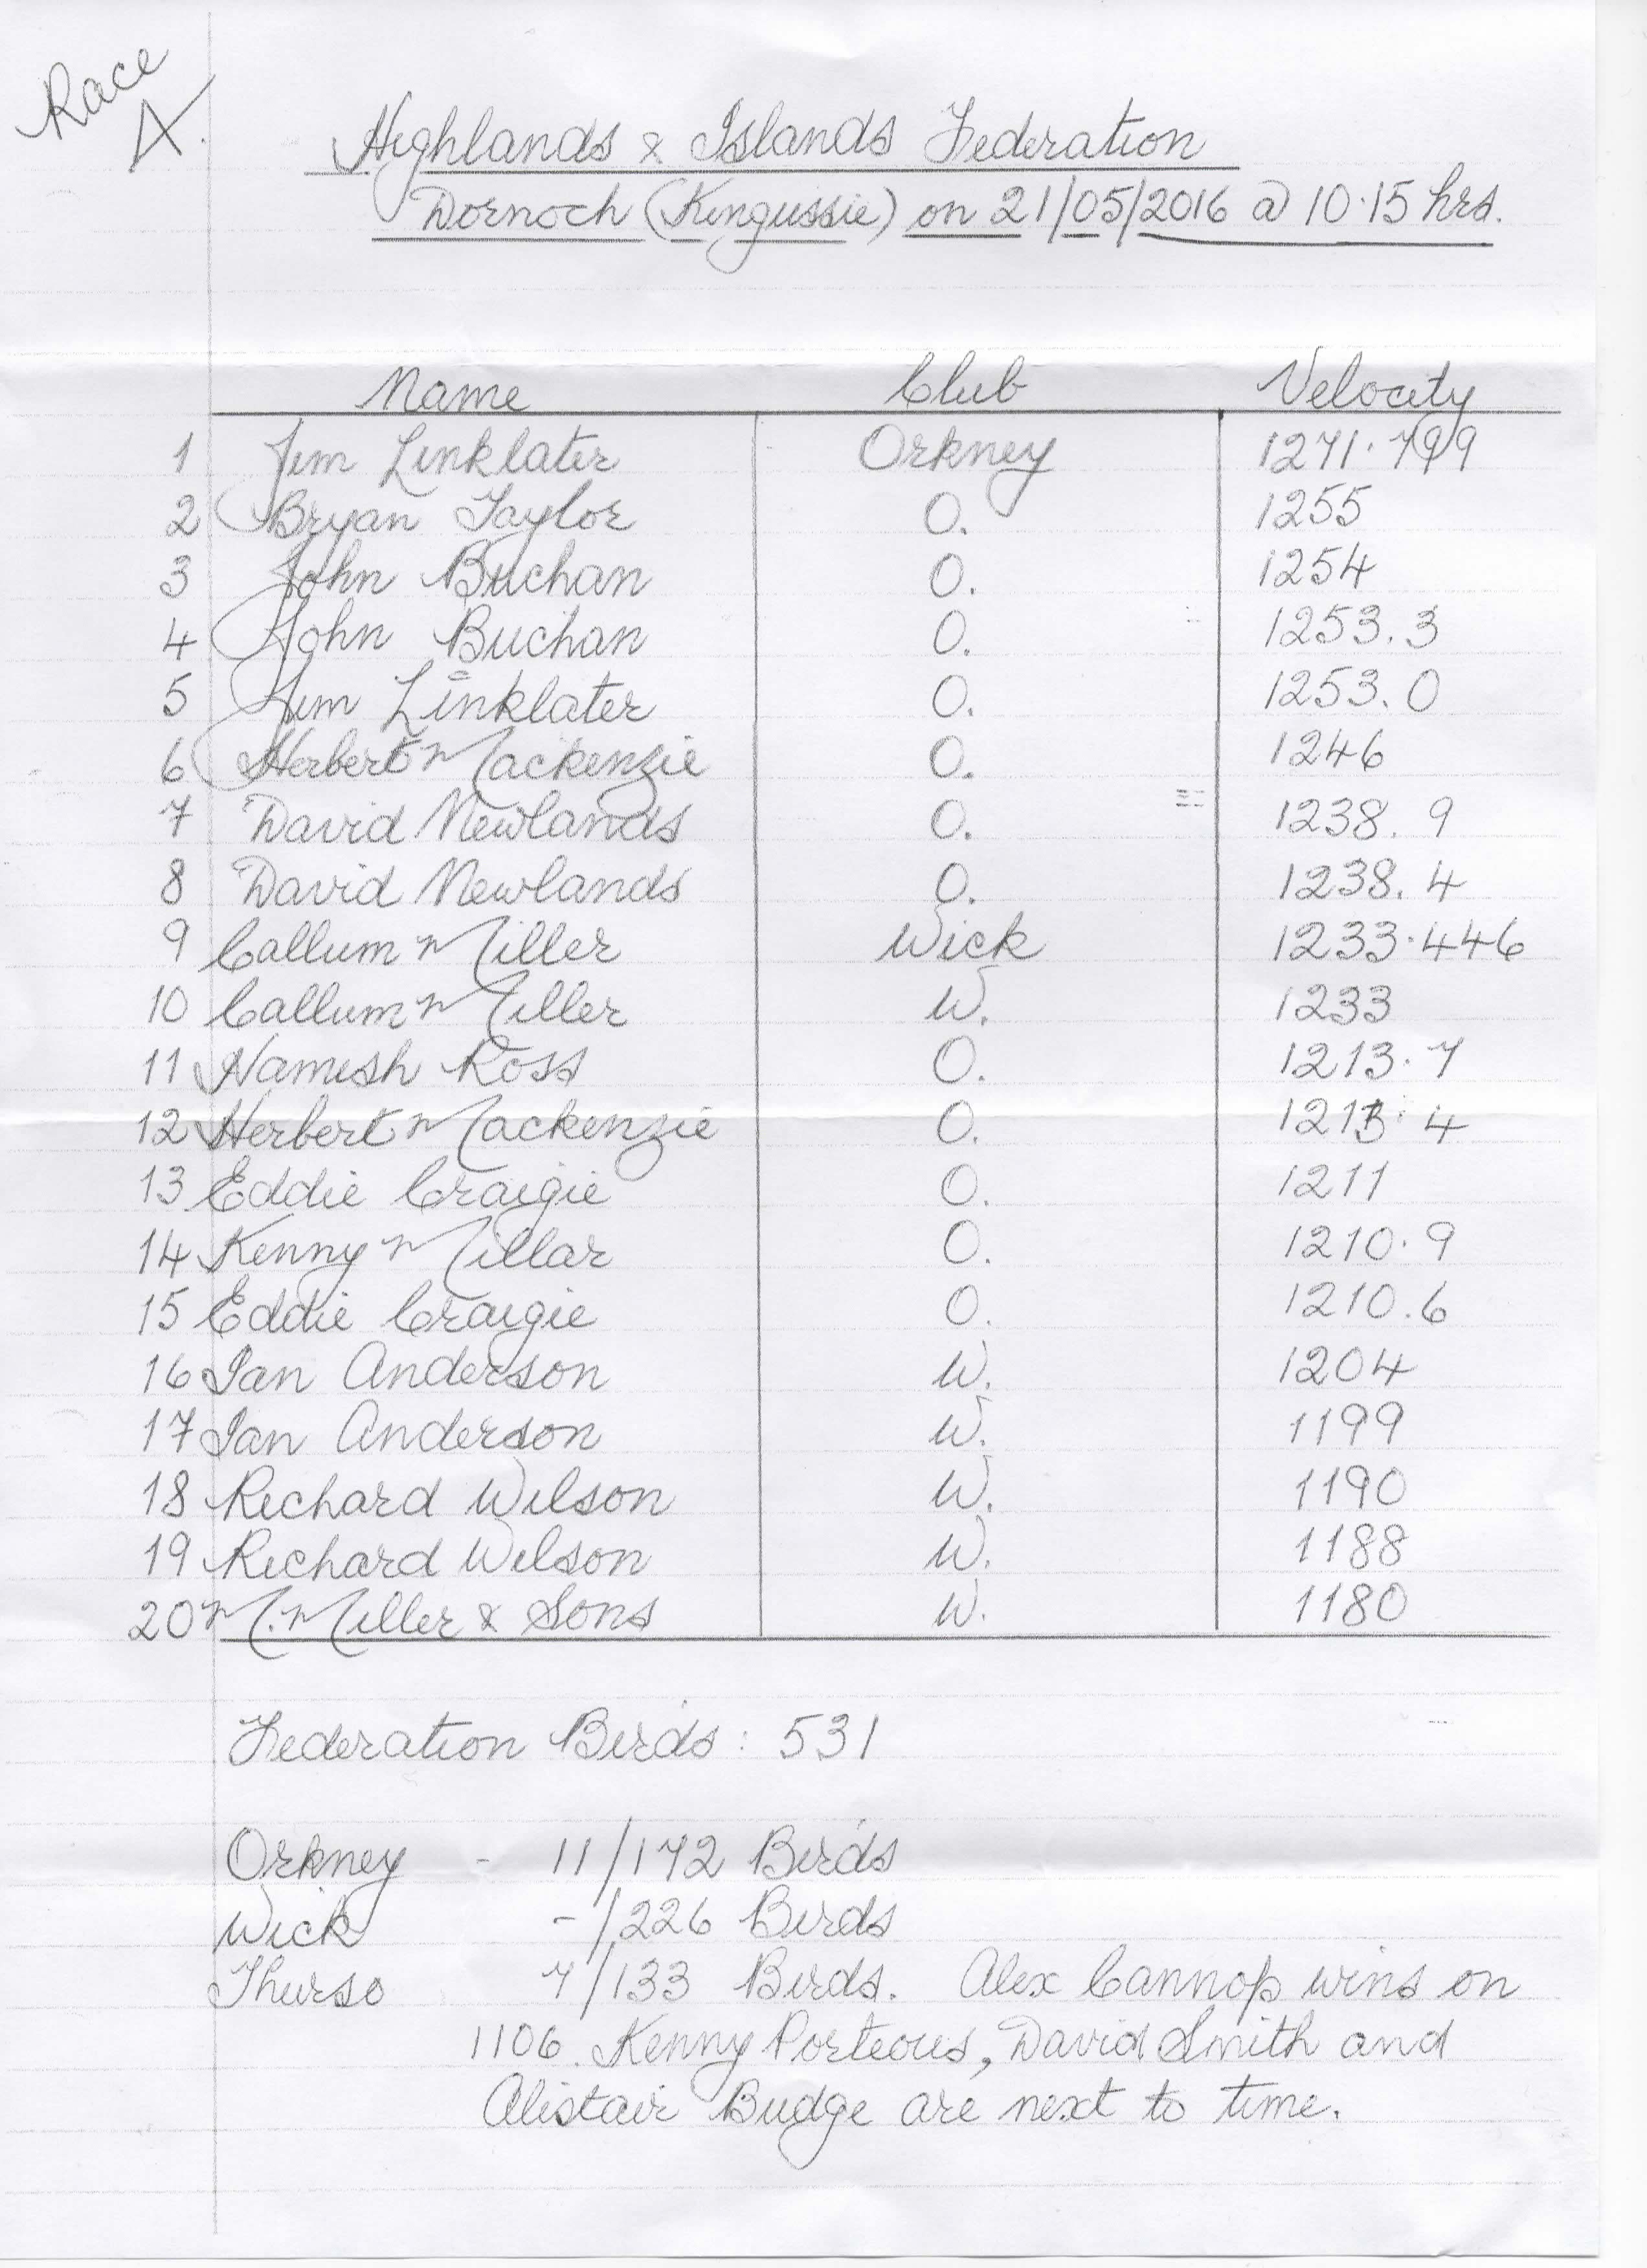 Race
4.
Highlands & Islands Federation
Dornoch (Kingussie) on 21/05/2016 @ 10.15 hrs.
Name Club Velocity
1 Jim Linklater Orkney 1271.799
2 Bryan Taylor O. 1255
3 John Buchan O. 1254
4 John Buchan O. 1253.3
5 Jim Linklater O. 1253.0
6 Herbert Mackenzie O. 1246
7 David Newlands O. 1238.9
8 David Newlands O. 1238.4
9 Callum Miller Wick 1233.446
10 Callum Miller W. 1233
11 Hamish Ross O. 1213.7
12 Herbert Mackenzie O. 1213.4
13 Eddie Craigie O. 1211
14 Kenny Millar O. 1210.9
15 Eddie Craigie O. 1210.6
16 Ian Anderson W. 1204
17 Ian Anderson W. 1199
18 Richard Wilson W. 1190
19 Richard Wilson W. 1188
20 M. Miller & Sons W. 1180
Federation Birds : 531
Orkney - 11/172 Birds
Wick -/226 Birds
Thurso 7/133 Birds. Alex Cannop wins on
1106. Kenny Porteous, David Smith and
Alistair Budge are next to time.